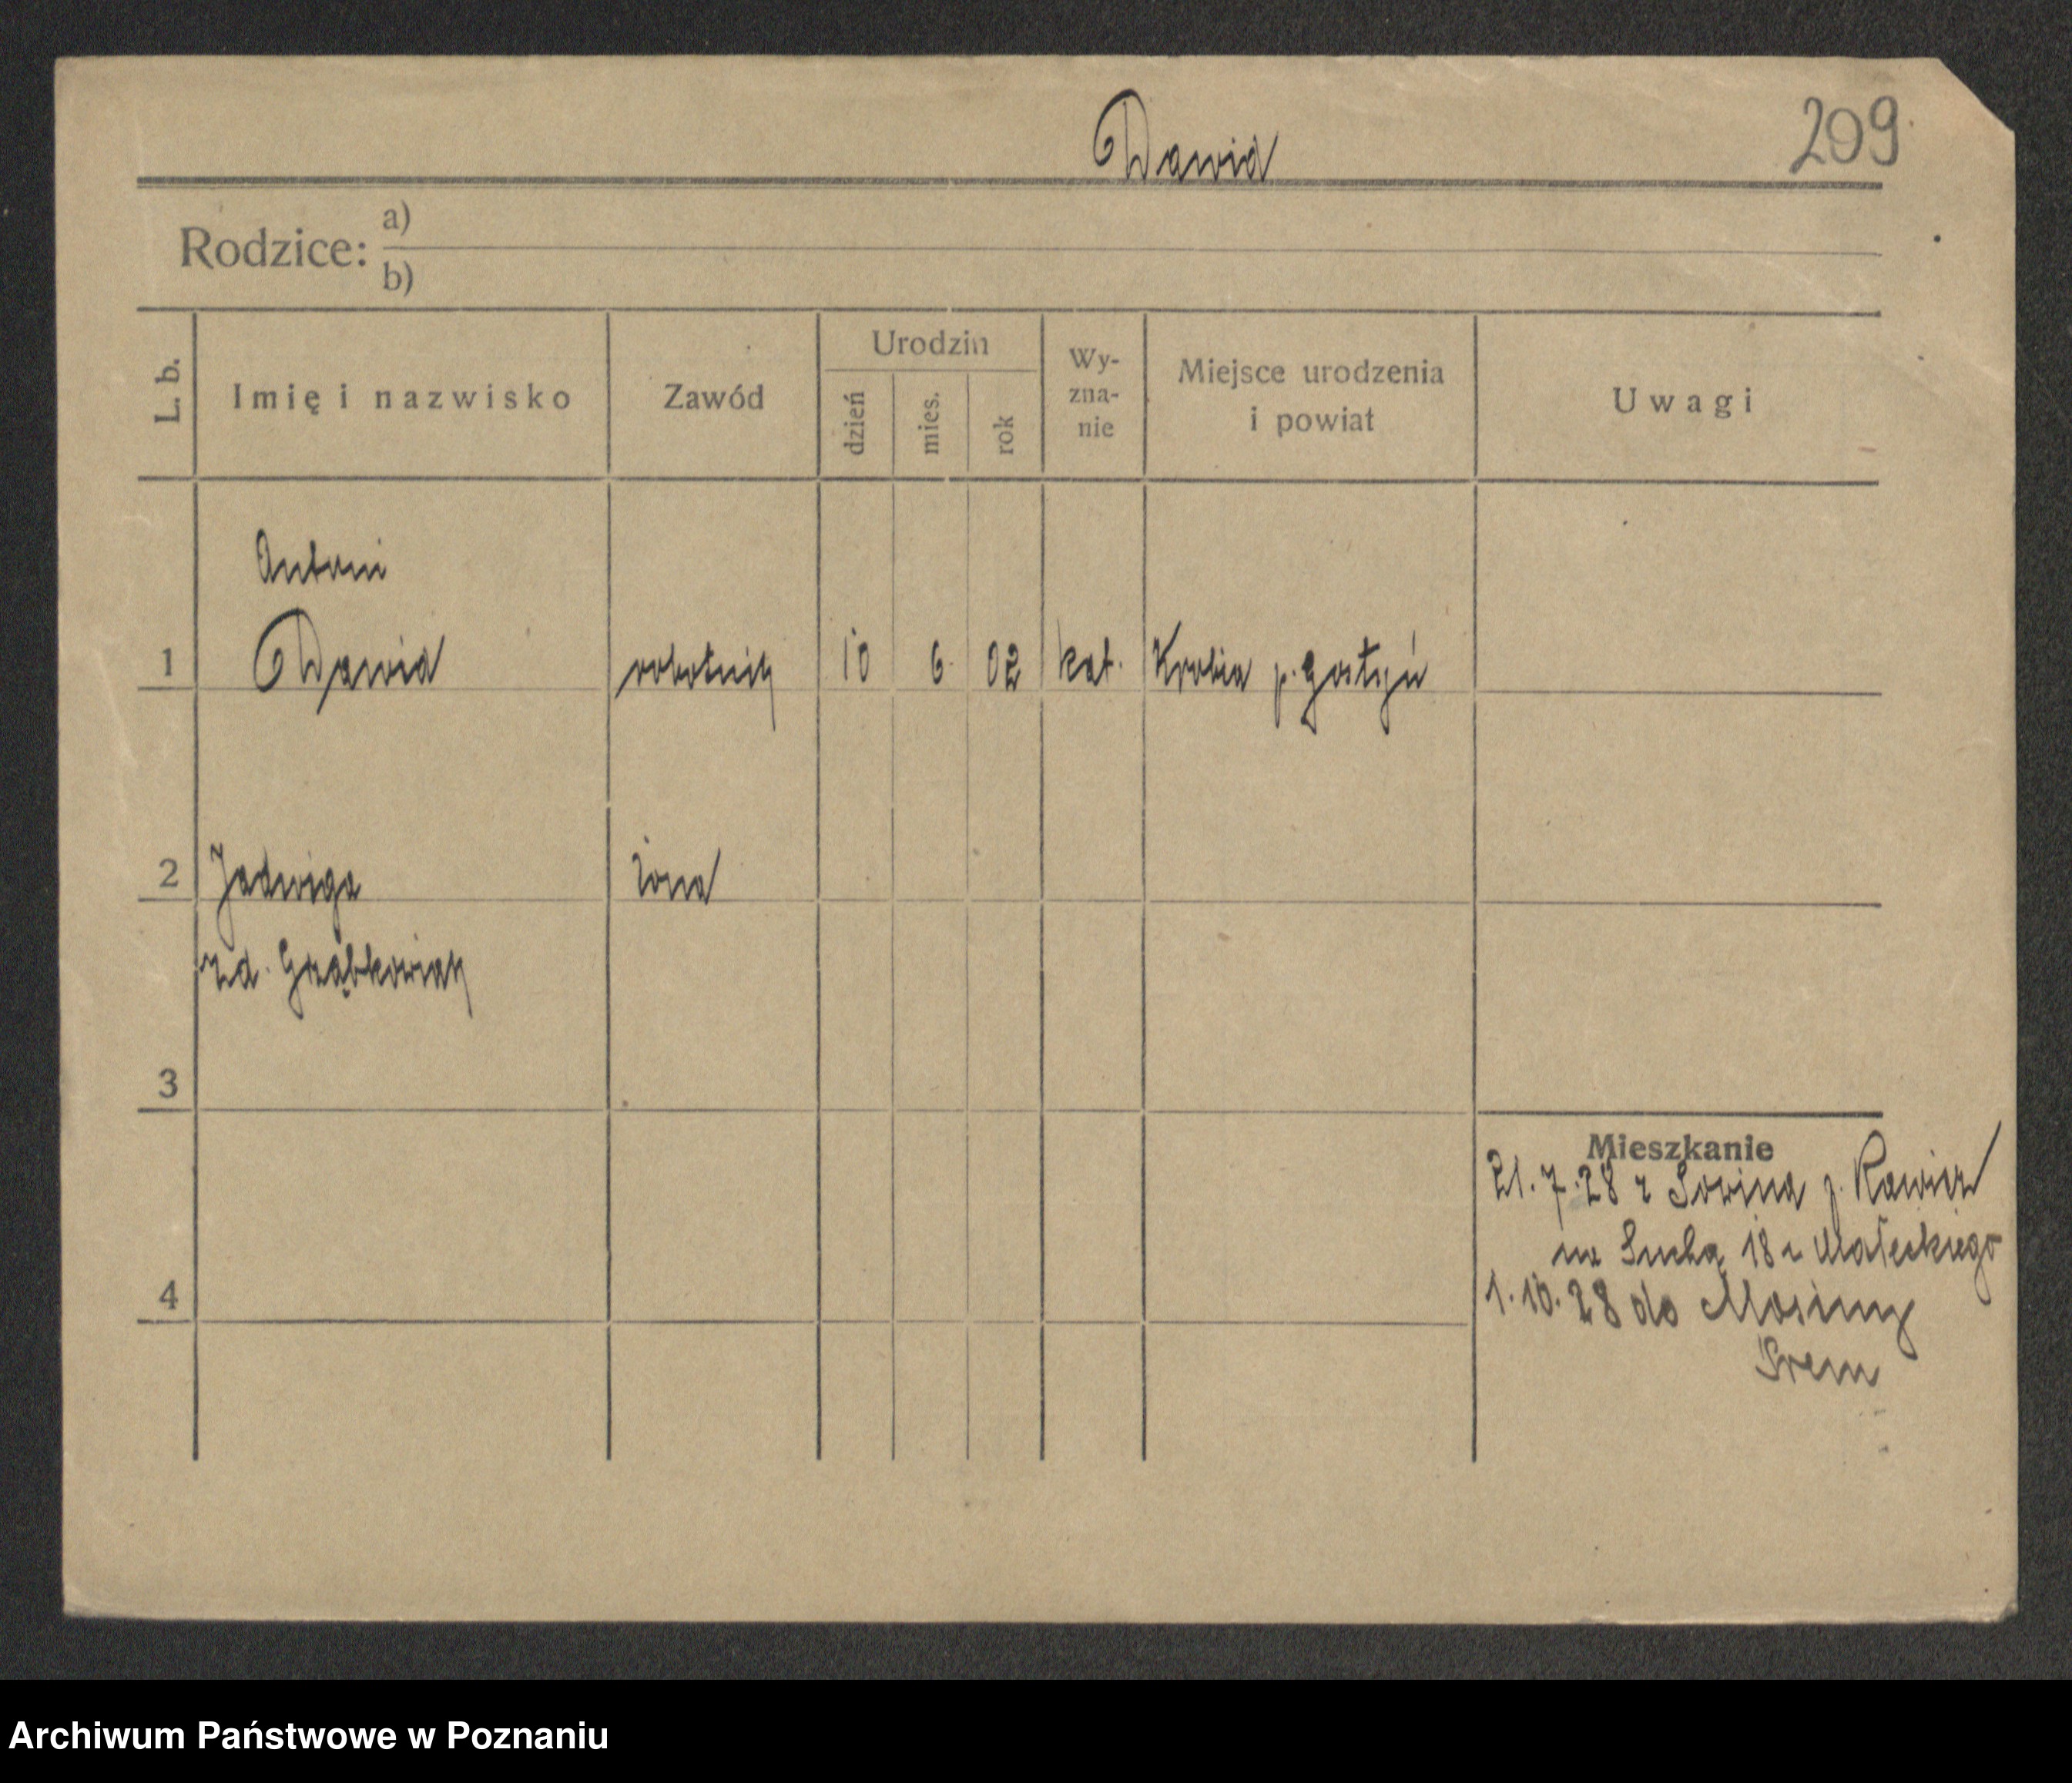 Dawid
209
Rodzice:
a)
b)
L. b.
Imię i nazwisko
Zawód
Urodzin
dzień
mies.
rok
Wy-
zna-
nie
Miejsce urodzenia
i powiat
Uwagi
Antoni
1 Dawid robotnik 10 6. 02 kat. Krobia p. Gostyń
2 Jadwiga żona
zd. Grząbkowiak
3
Mieszkanie
21.7.28 z p. Rawicz
na Suchą 18 u Małeckiego
4
1.10.28 do Mosiny
Śrem
Archiwum Państwowe w Poznaniu